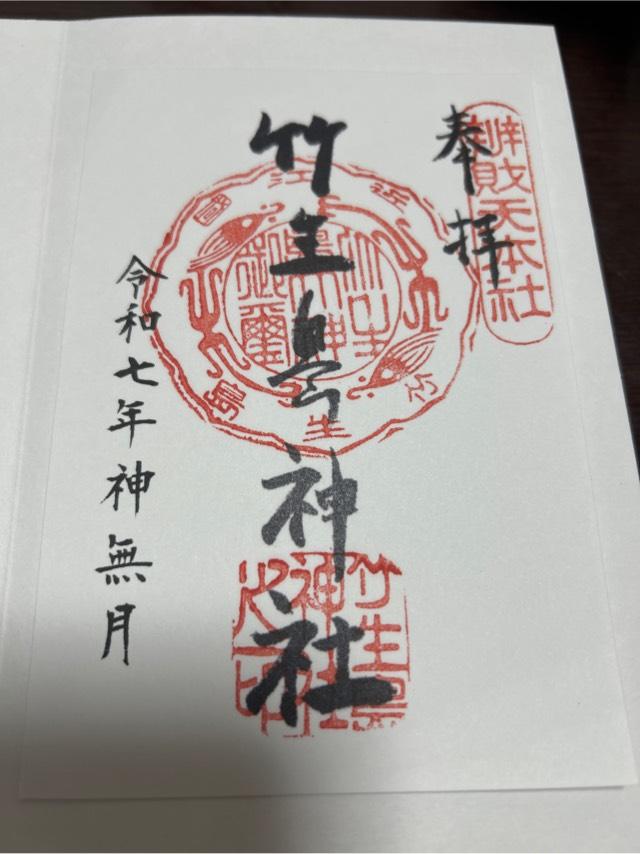 辨財天本社
奉拝
竹生島神社
近江國
竹生島
竹生島神社之印
令和七年神無月